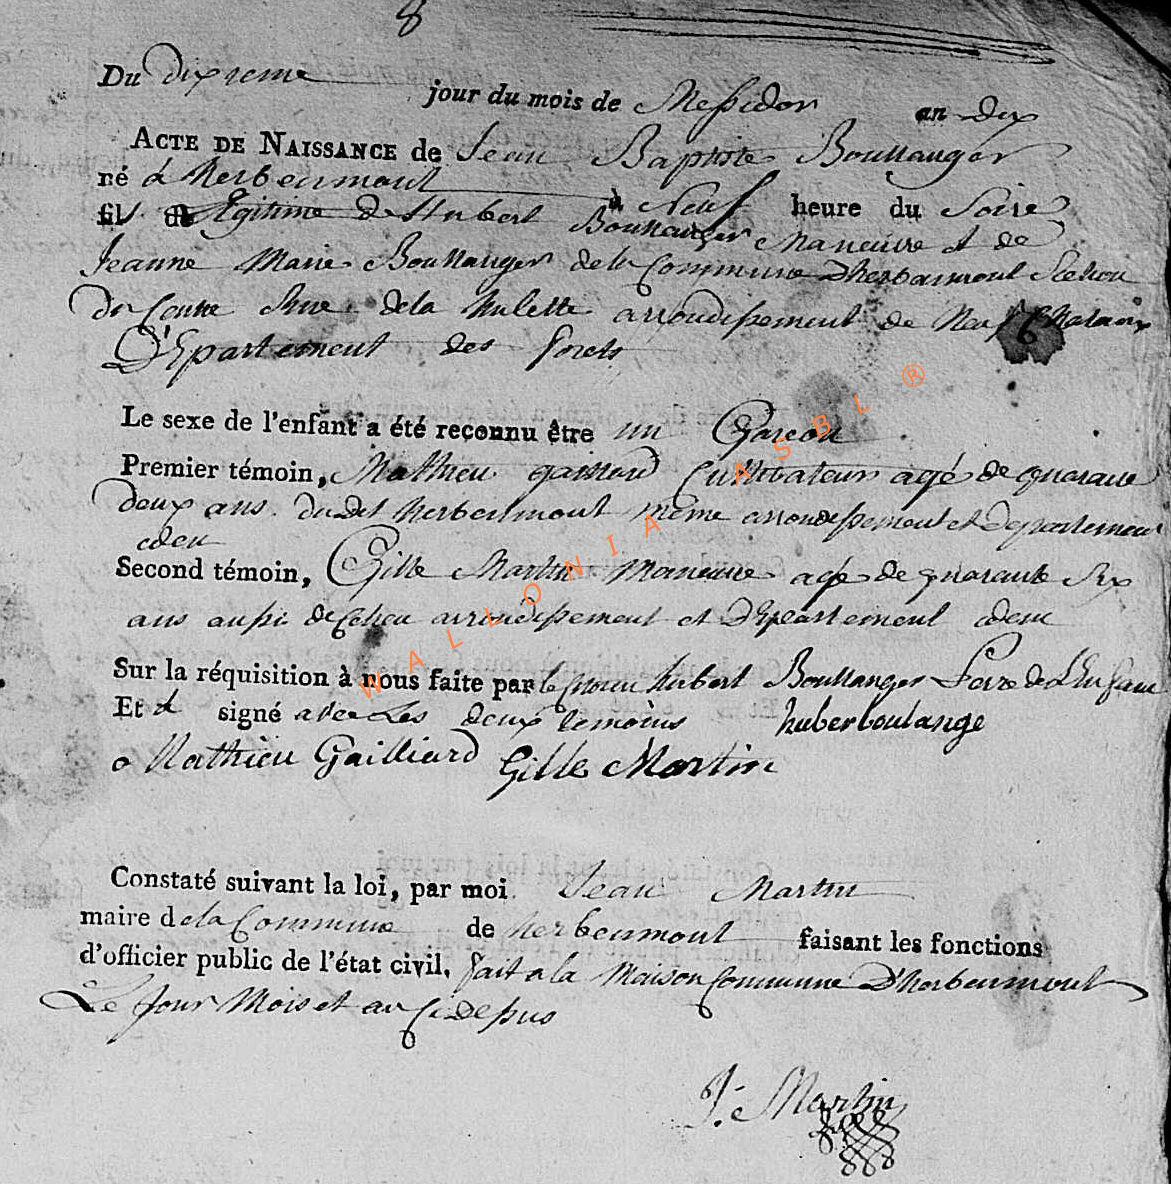 8
Du dixieme jour du mois de Messidor an dix
ACTE DE NAISSANCE de Jean Baptiste Boullanger
né à Herbeumont à Neuf heure du Soire
fils Legitime De Hubert Boullanger Maneuvre et de
Jeanne Marie Boullanger de la Commune D'herbeumont
de la Mulette arrondissement de Neufchateaux
D'Epartement des forets
6
Le sexe de l'enfant a été reconnu être un Garcon
Premier témoin, Mathieu gaillard Cultivateur agé de quarante
deux ans dudit herbeumont même arrondissement et departement
Second témoin, Gille Martin Maneuvre agé de quarante Six
ans aussi de arrondissement et D'Epartement
Sur la réquisition à nous faite par Hubert Boullanger Pere de L'Enfant
Et signé avec Les deux temoins huberboulange
Mathieu Gailliard Gille Martin
Constaté suivant la loi, par moi Jean Martin
maire dela Commune de herbeumont faisant les fonctions
d'officier public de l'état civil. fait a la Maison Commune D'herbeumont
Le Jour Mois et an Cidessus
J. Martin
WALLONIA ASBL ®